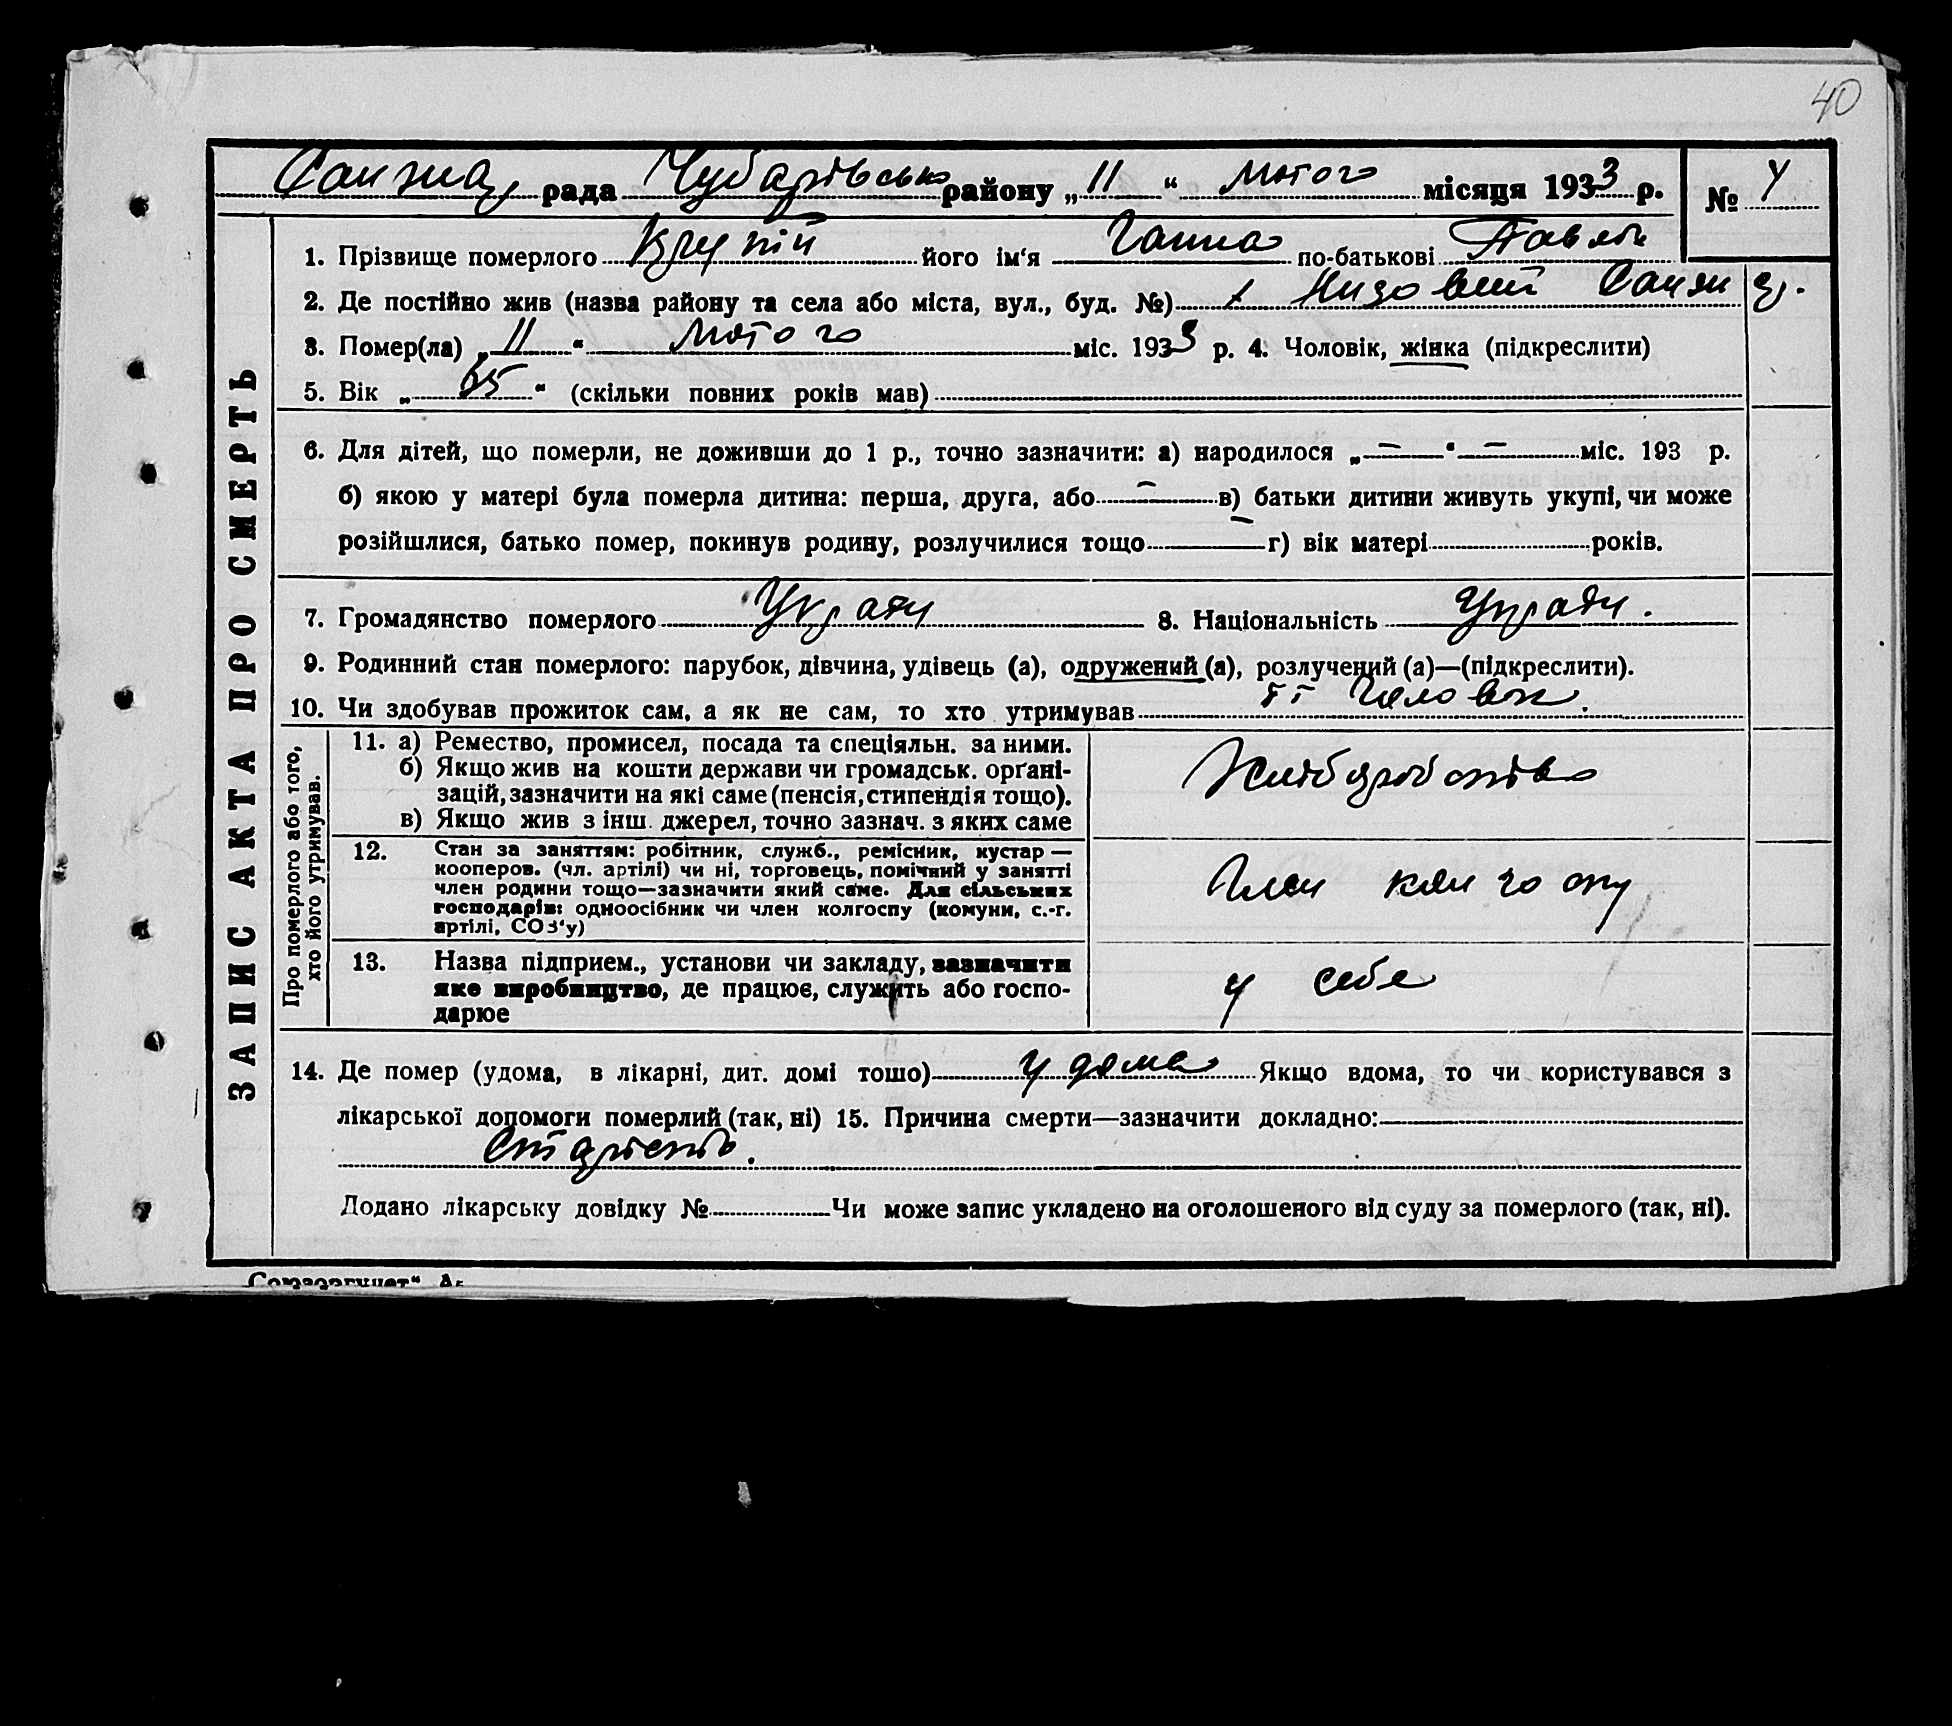 40
Санжар рада Чубарівськ району „ 11 “ лютого місяця 1933 р. № 4
1. Прізвище померлого Крупій його ім‘я Ганна по-батькові Павлів
2. Де постійно жив (назва району та села або міста, вул., буд. №) Низовий Санжар.
3. Помер(ла) „ 11 “ лютого міс. 1933 р. 4. Чоловік, жінка (підкреслити)
5. Вік „ 65 “ (скільки повних років мав)
6. Для дітей, що померли, не доживши до 1 р., точно зазначити: а) народилося „ — “ — міс. 193 р.
б) якою у матері була померла дитина: перша, друга, або — в) батьки дитини живуть укупі, чи може
розійшлися, батько помер, покинув родину, розлучилися тощо — г) вік матері років.
7. Громадянство померлого Украти 8. Національність Украти.
9. Родинний стан померлого: парубок, дівчина, удівець (а), одружений (а), розлучений (а)—(підкреслити).
10. Чи здобував прожиток сам, а як не сам, то хто утримував її Чоловік.
Про померлого або того,
хто його утримував.
11. а) Ремество, промисел, посада та спеціяльн. за ними.
б) Якщо жив на кошти держави чи громадськ. орґані-
зацій, зазначити на які саме (пенсія, стипендія тощо).
в) Якщо жив з інш. джерел, точно зазнач. з яких саме
Хліборобство
12. Стан за заняттям: робітник, служб., ремісник, кустар —
кооперов. (чл. артілі) чи ні, торговець, помічний у занятті
член родини тощо—зазначити який саме. Для сільських
господарів: одноосібник чи член колгоспу (комуни, с.-г.
артілі, СОЗ‘у)
Член
13. Назва підприєм., установи чи закладу, зазначити
яке виробництво, де працює, служить або госпо-
дарює
у себе
14. Де помер (удома, в лікарні, дит. домі тошо) у дома Якщо вдома, то чи користувався з
лікарської допомоги померлий (так, ні) 15. Причина смерти—зазначити докладно:
Старість.
Додано лікарську довідку № Чи може запис укладено на оголошеного від суду за померлого (так, ні).
ЗАПИС АКТА ПРО СМЕРТЬ